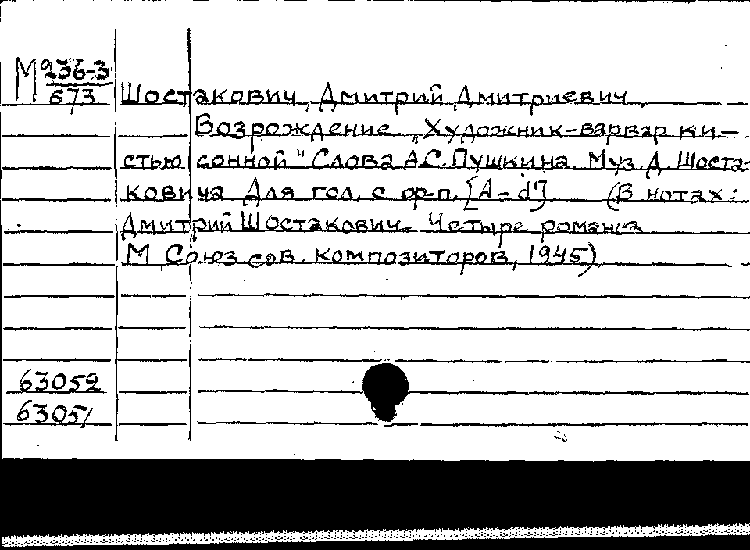 М 236-3
673
Шостакович, Дмитрий Дмитриевич
Возрождение „Художник-варвар ки-
стью сонной" Слова А.С.Пушкина. Муз. Д. Шоста-
ковича Для гол. с ф-п. [A-d¹] (В нотах:
Дмитрий Шостакович. Четыре романса
М Союз сов. композиторов, 1945)
63052
63051